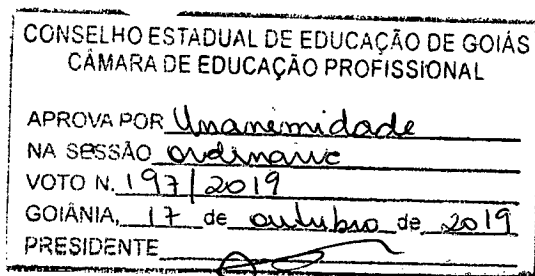 CONSELHO ESTADUAL DE EDUCAÇÃO DE GOIÁS
CÂMARA DE EDUCAÇÃO PROFISSIONAL
APROVA POR Unanimidade
NA SESSÃO ordinaric
VOTO N. 197/2019
GOIÂNIA, 17 de outubro de 2019
PRESIDENTE